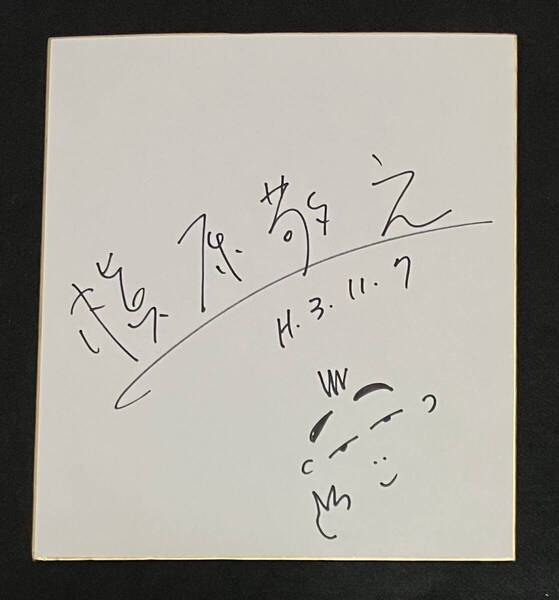 原敬之
H.3.11.7